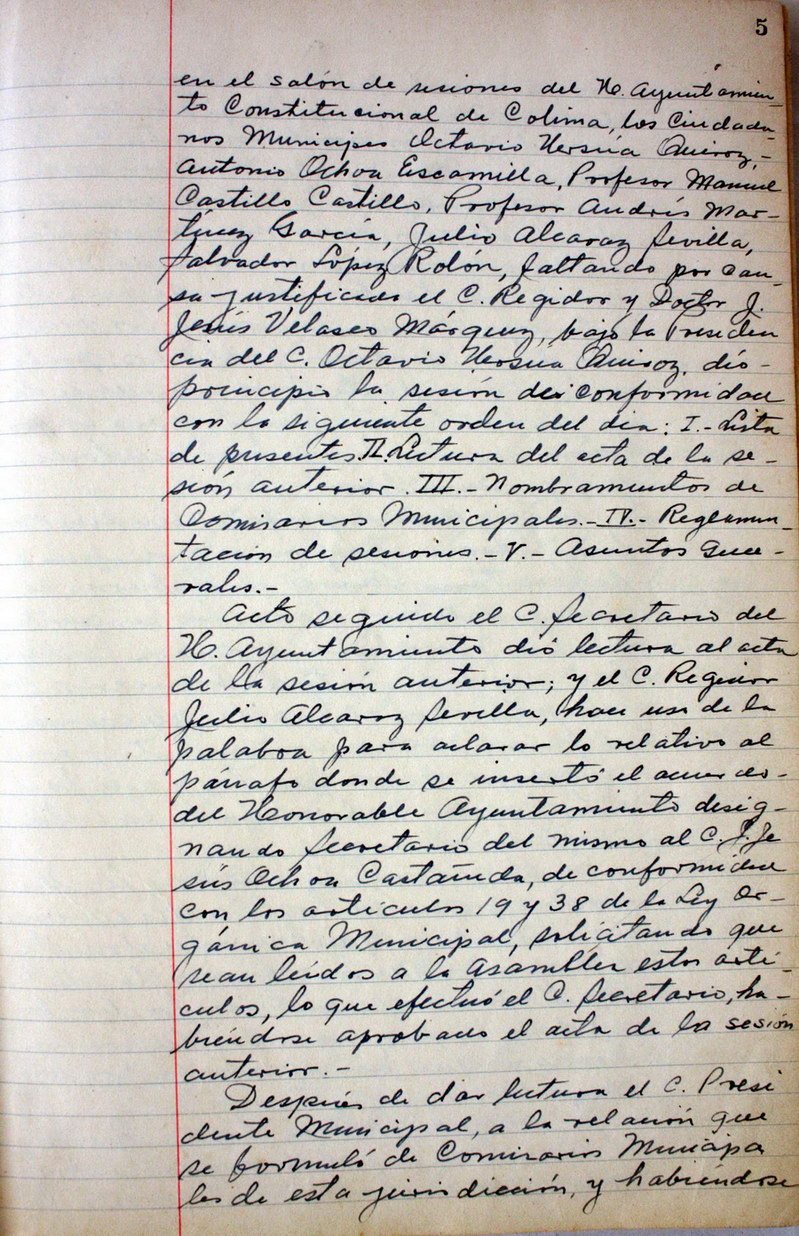 5
en el salón de sesiones del H. Ayuntamien-
to Constitucional de Colima, los Ciudada-
nos Municipes Octavio Ursúa Quiroz,-
Antonio Ochoa Escamilla, Profesor Manuel
Castillo Castillo, Profesor Andrés Mar-
tínez García, Julio Alcaraz Sevilla,
Salvador López Rolón, faltando por cau-
sa justificada el C. Regidor y Doctor J.
Jesús Velasco Márquez, bajo la Presiden
cia del C. Octavio Ursua Quiroz, dió-
principio la sesión de conformidad
con la siguiente orden del dia: I.- Lista
de presentes II. Lectura del acta de la se-
sión anterior. III.- Nombramientos de
Comisarios Municipales.- IV.- Reglamen-
tación de sesiones.- V.- Asuntos Gene-
rales.-
Acto seguido el C. Secretario del
H. Ayuntamiento dió lectura al acta
de la sesión anterior; y el C. Regidor
Julio Alcaraz Sevilla, hace uso de la
palabra para aclarar lo relativo al
párrafo donde se insertó el acuerdo-
del Honorable Ayuntamiento desig-
nando Secretario del mismo al C. J. Je
sús Ochoa Castañeda, de conformidad
con los artículos 19 y 38 de la Ley Or-
gánica Municipal, solicitando que
sean leídos a la Asamblea estos artí-
culos, lo que efectuó el C. Secretario, ha-
biéndose aprobado el acta de la sesión
anterior.-
Después de dar lectura el C. Presi
dente Municipal, a la relación que
se formuló de Comisarios Municipa
les de esta jurisdicción, y habiéndose